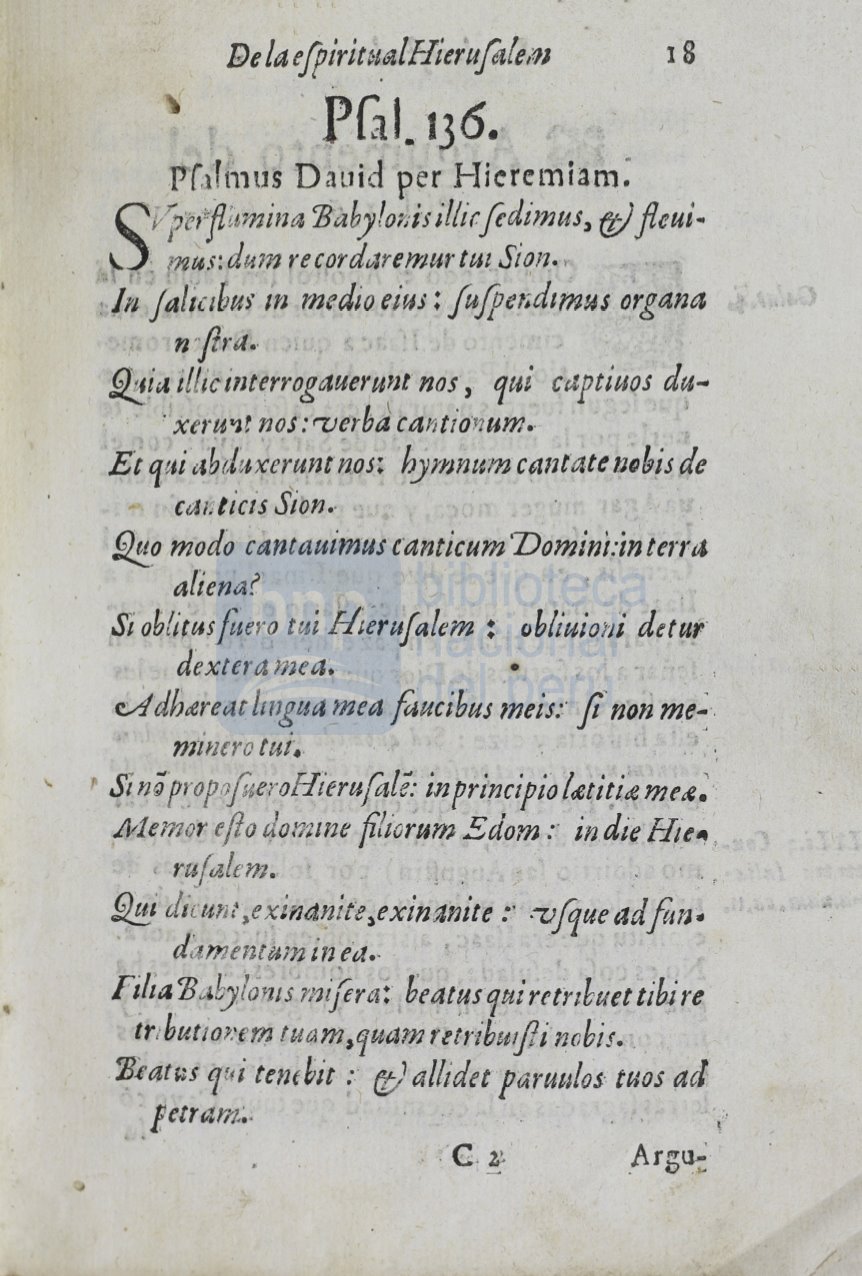 De la eſpiritual Hieruſalem 18
Pſal. 136.
Pſalmus Dauid per Hieremiam.
SVper flumina Babylonis illic ſedimus, & fleui-
mus: dum recordaremur tui Sion.
In ſalicibus in medio eius: ſuſpendimus organa
noſtra.
Quia illic interrogauerunt nos, qui captiuos du-
xerunt nos: verba cantionum.
Et qui abduxerunt nos: hymnum cantate nobis de
canticis Sion.
Quo modo cantauimus canticum Domini: in terra
aliena?
Si oblitus fuero tui Hieruſalem: obliuioni detur
dextera mea.
Adhæreat lingua mea faucibus meis: ſi non me-
minero tui.
Si nõ propoſuero Hieruſalẽ: in principio lætitiæ meæ.
Memor eſto domine filiorum Edom: in die Hie-
ruſalem.
Qui dicunt, exinanite, exinanite: vſque ad fun-
damentum in ea.
Filia Babylonis miſera: beatus qui retribuet tibi re
tributionem tuam, quam retribuiſti nobis.
Beatus qui tenebit: & allidet paruulos tuos ad
petram.
C 2 Argu-
bnp biblioteca
nacional
del perú